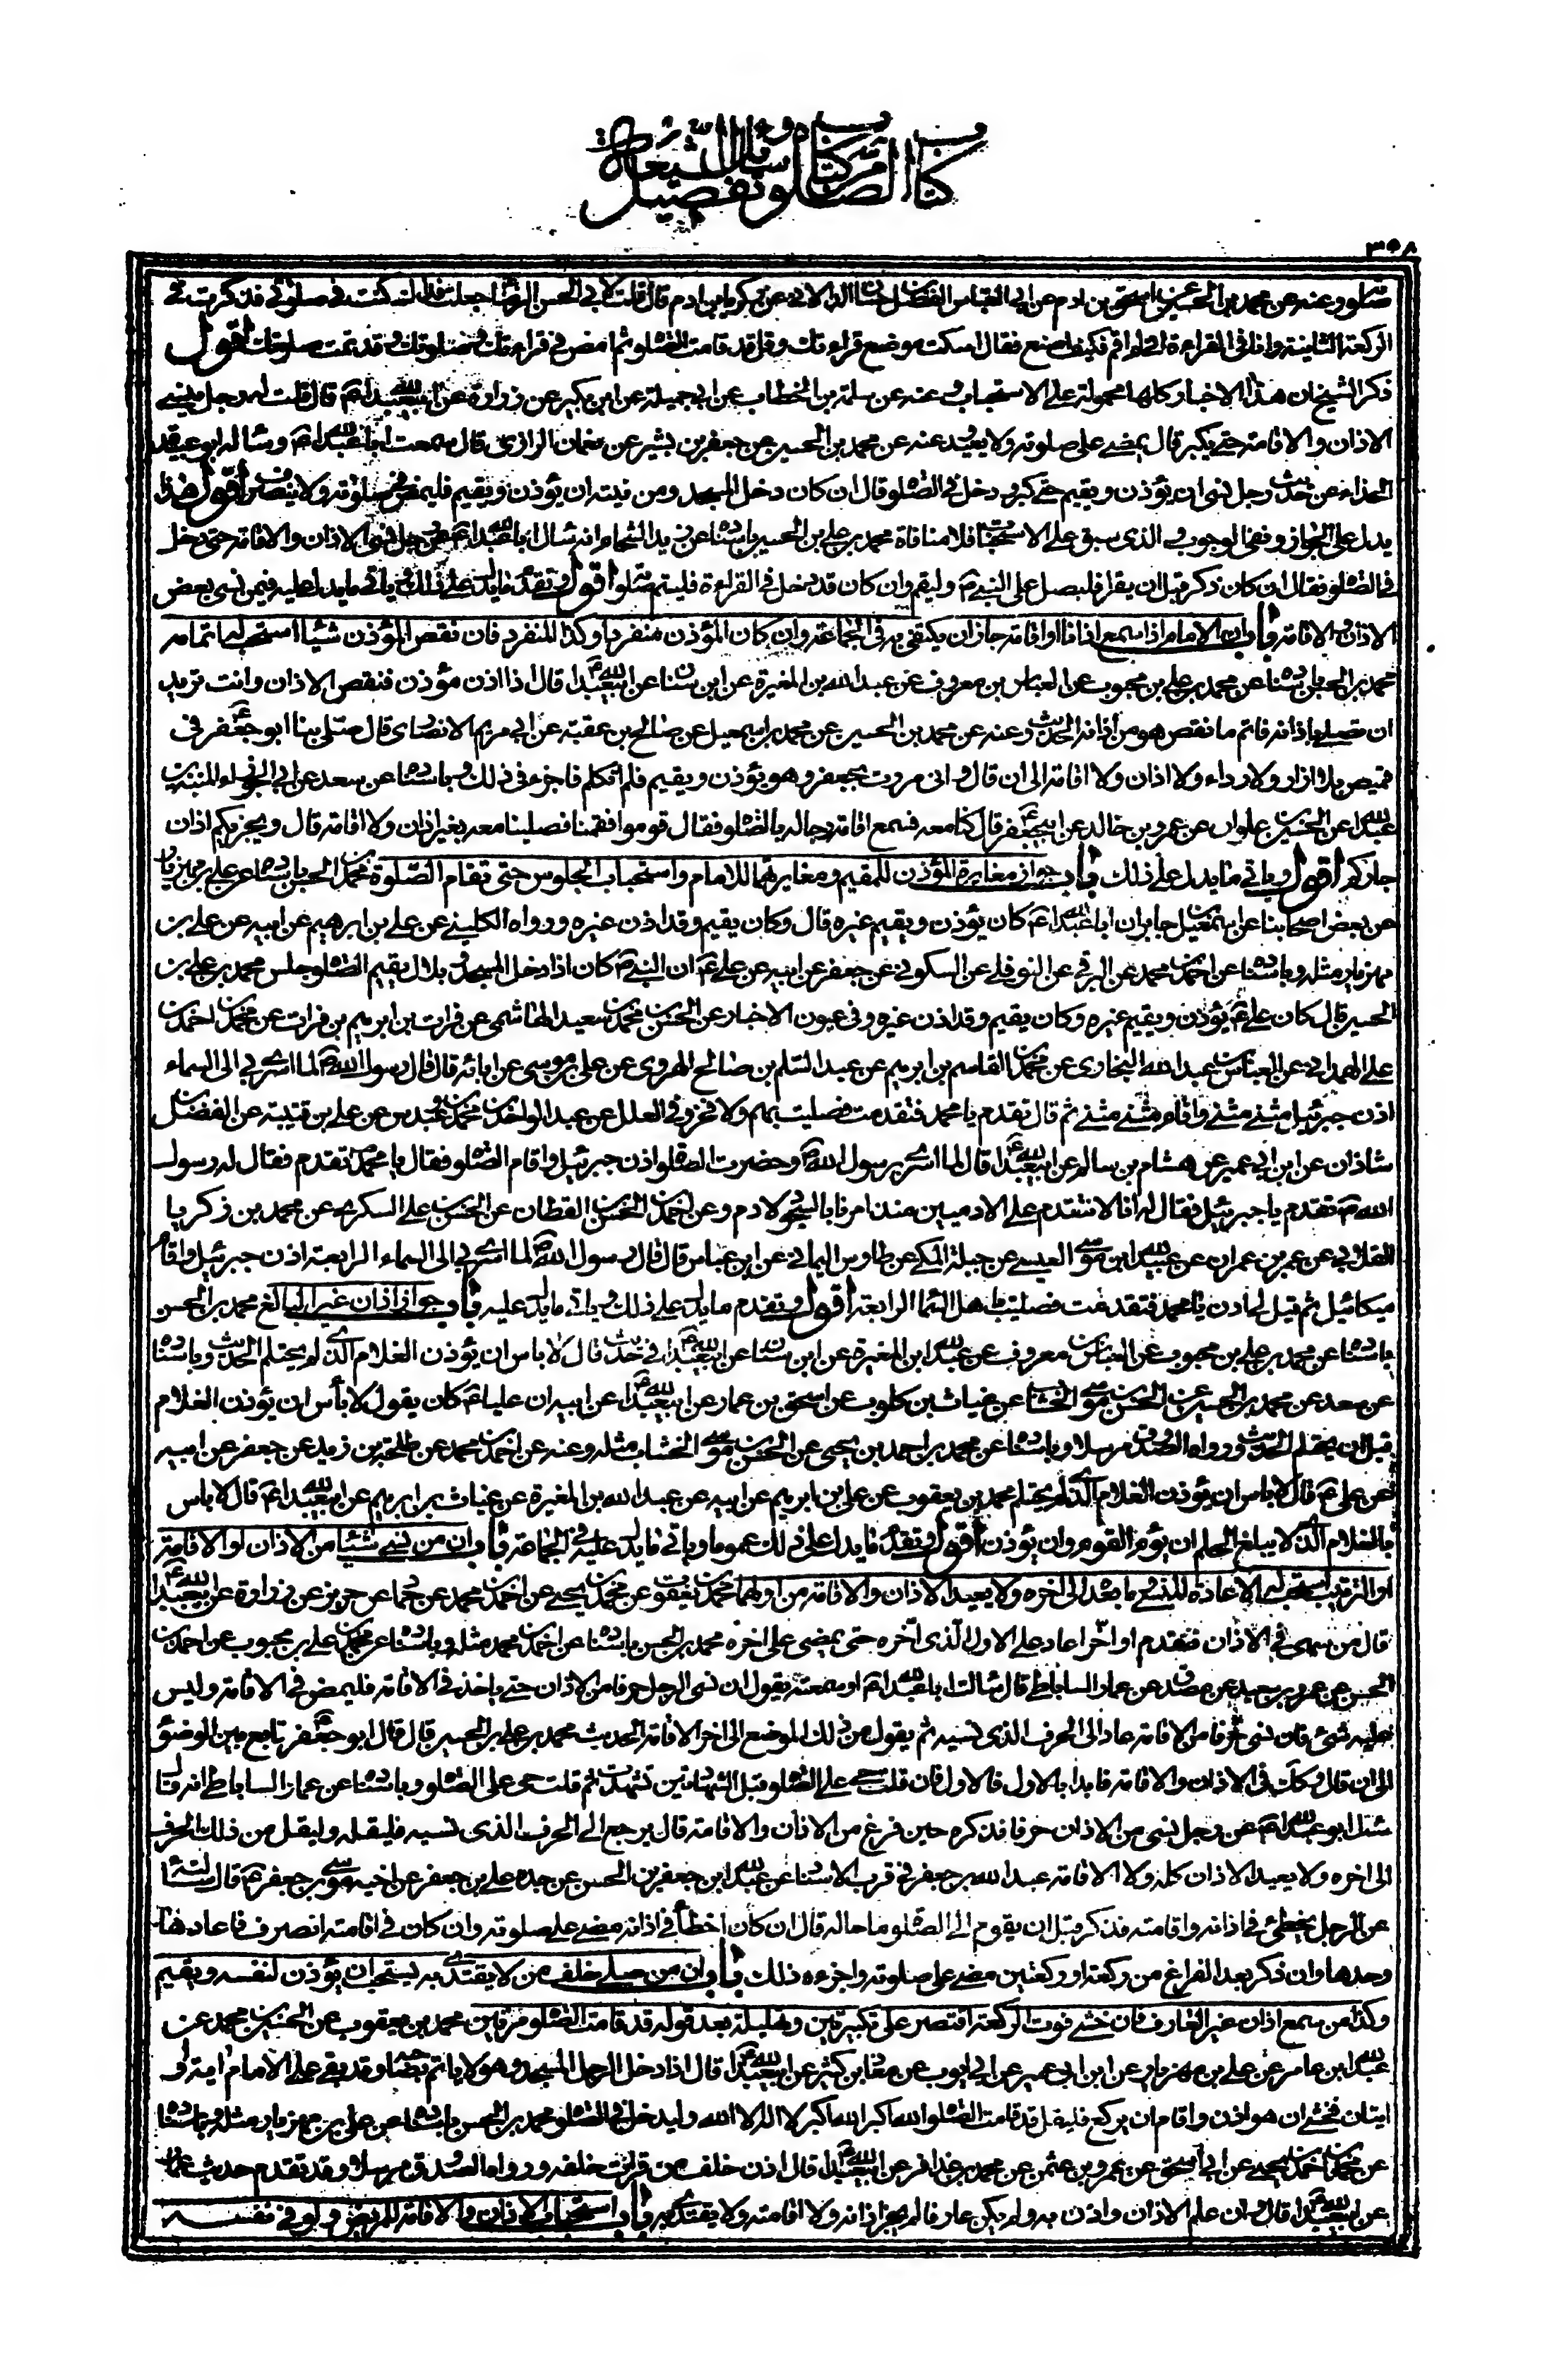 كتاب الصلوة من كتاب وسائل الشيعة وتفصيل
٣٥٨
صلوته وعنه عن محمد بن الحسين عن اسحق بن ادم عن ابي العباس الفضل بن حسان الدالاني عن زكريا بن ادم قال قلت لابي الحسن الرضا جعلت فداك كنت في صلوتي فذكرت في
الركعة الثانية وانا في القراءة اني لم اقم فكيف اصنع فقال اسكت موضع قراءتك وقل قد قامت الصلوة ثم امض في قراءتك وصلوتك وقد تمت صلوتك اقول
ذكر الشيخ ان هذه الاخبار كلها محمولة على الاستحباب وعنه عن سلمة بن الخطاب عن ابي جميلة عن ابن بكير عن زرارة عن ابي عبد الله ع قال قلت له رجل ينسى
الاذان والاقامة حتى يكبر قال يمضي على صلوته ولا يعيد وعنه عن محمد بن الحسين عن جعفر بن بشير عن نعمان الرازي قال سمعت ابا عبد الله ع وسأله ابو عبيدة
الحذاء عن حديث رجل نسي ان يؤذن ويقيم حتى كبر ودخل في الصلوة قال ان كان دخل المسجد ومن نيته ان يؤذن ويقيم فليمض في صلوته ولا ينصرف اقول هذا
يدل على الجواز ونفي الوجوب والذي سبق على الاستحباب فلا منافاة محمد بن علي بن الحسين باسناده عن زيد الشحام انه سأل ابا عبد الله ع عن رجل نسي الاذان والاقامة حتى دخل
في الصلوة فقال ان كان ذكر قبل ان يقرا فليصل على النبي ص وليقم وان كان قد دخل في القراءة فليتم صلوته اقول وتقدم ما يدل على ذلك ويأتي ما يدل عليه فيمن نسي بعض
الاذان والاقامة باب ان الامام اذا سمع اذانا او اقامة جاز ان يكتفي به في الجماعة وان كان المؤذن منفردا وكذا المنفرد فان نقص المؤذن شيئا استحب له اتمامه
محمد بن الحسن باسناده عن محمد بن علي بن محبوب عن العباس بن معروف عن عبد الله بن المغيرة عن ابن سنان عن ابي عبد الله ع قال اذا اذن مؤذن فنقص الاذان وانت تريد
ان تصلي باذانه فاتم ما نقص هو من اذانه الحديث وعنه عن محمد بن الحسين عن محمد بن اسمعيل عن صالح بن عقبة عن ابي مريم الانصاري قال صلى بنا ابو جعفر ع في
قميص بلا ازار ولا رداء ولا اذان ولا اقامة الى ان قال واني مررت بجعفر وهو يؤذن ويقيم فلم اتكلم فاجزءني ذلك وباسناده عن سعد عن ابي الجوزاء المنبه بن
عبد الله عن الحسين بن علوان عن عمرو بن خالد عن ابي جعفر ع قال كنا معه فسمع اقامة جار له بالصلوة فقال قوموا فقمنا فصلينا معه بغير اذان ولا اقامة قال ويجزيكم اذان
جاركم اقول ويأتي ما يدل على ذلك باب جواز مغايرة المؤذن للمقيم ومغايرتهما للامام واستحباب الجلوس حتى تقام الصلوة محمد بن الحسن باسناده عن علي بن مهزيار
عن بعض اصحابنا عن اسمعيل بن جابر ان ابا عبد الله ع كان يؤذن ويقيم غيره قال وكان يقيم وقد اذن غيره ورواه الكليني عن علي بن ابرهيم عن ابيه عن علي بن
مهزيار مثله وباسناده عن احمد بن محمد عن البرقي عن النوفلي عن السكوني عن جعفر عن ابيه عن علي ع ان النبي ص كان اذا دخل المسجد وبلال يقيم الصلوة جلس محمد بن علي بن
الحسين قال كان علي ع يؤذن ويقيم غيره وكان يقيم وقد اذن غيره وفي عيون الاخبار عن الحسن بن محمد بن سعيد الهاشمي عن فرات بن ابرهيم بن فرات عن محمد بن احمد بن
علي الهمداني عن العباس بن عبد الله البخاري عن محمد بن القاسم بن ابرهيم عن عبد السلام بن صالح الهروي عن علي بن موسى عن ابائه قال قال رسول الله ص لما اسري بي الى السماء
اذن جبرئيل مثنى مثنى واقام مثنى مثنى ثم قال تقدم يا محمد فتقدمت فصليت بهم ولا فخر وفي العلل عن عبد الواحد بن محمد بن عبدوس عن علي بن قتيبة عن الفضل بن
شاذان عن ابن ابي عمير عن هشام بن سالم عن ابي عبد الله ع قال لما اسري برسول الله ص وحضرت الصلوة اذن جبرئيل واقام الصلوة فقال يا محمد تقدم فقال له رسول
الله ص تقدم يا جبرئيل فقال له انا لا نتقدم على الادميين منذ امرنا بالسجود لادم وعن احمد بن الحسن القطان عن الحسن بن علي السكري عن محمد بن زكريا
الغلابي عن عمر بن عمران عن عبيد الله بن موسى العبسي عن جبلة المكي عن طاوس اليماني عن ابن عباس قال قال رسول الله ص لما اسري بي الى السماء الرابعة اذن جبرئيل واقام
ميكائيل ثم قيل لي ادن يا محمد فتقدمت فصليت باهل السماء الرابعة اقول وتقدم ما يدل على ذلك ويأتي ما يدل عليه باب جواز اذان غير البالغ محمد بن الحسن
باسناده عن محمد بن علي بن محبوب عن العباس بن معروف عن عبد الله بن المغيرة عن ابن سنان عن ابي عبد الله ع في حديث قال لا باس ان يؤذن الغلام الذي لم يحتلم الحديث وباسناده
عن سعد عن محمد بن الحسين عن الحسن بن موسى الخشاب عن غياث بن كلوب عن اسحق بن عمار عن ابي عبد الله ع عن ابيه ان عليا ع كان يقول لا بأس ان يؤذن الغلام
قبل ان يحتلم الحديث ورواه الصدوق مرسلا وباسناده عن محمد بن احمد بن يحيى عن الحسن بن موسى الخشاب مثله وعنه عن احمد بن محمد عن طلحة بن زيد عن جعفر عن ابيه
عن علي ع قال لا باس ان يؤذن الغلام الذي لم يحتلم محمد بن يعقوب عن علي بن ابرهيم عن ابيه عن عبد الله بن المغيرة عن غياث بن ابرهيم عن ابي عبد الله ع قال لا باس
بالغلام الذي لا يبلغ الحلم ان يؤم القوم وان يؤذن اقول وتقدم ما يدل على ذلك عموما ويأتي ما يدل عليه في الجماعة باب ان من نسي شيئا من الاذان او الاقامة
او الترتيب استحب له الاعادة للمنسي وما بعده الى اخره ولا يعيد الاذان والاقامة من اولهما محمد بن يعقوب عن محمد بن يحيى عن احمد بن محمد عن حماد عن حريز عن زرارة عن ابي عبد الله ع
قال من سهى في الاذان فقدم او اخر اعاد على الاول الذي اخره حتى يمضي على اخره محمد بن الحسن باسناده عن احمد بن محمد مثله وباسناده عن محمد بن علي بن محبوب عن احمد بن
الحسن عن عمرو بن سعيد عن مصدق عن عمار الساباطي قال سالت ابا عبد الله ع او سمعته يقول ان نسي الرجل حرفا من الاذان حتى ياخذ في الاقامة فليمض في الاقامة وليس
عليه شئ فان نسي حرفا من الاقامة عاد الى الحرف الذي نسيه ثم يقول من ذلك الموضع الى اخر الاقامة الحديث محمد بن علي بن الحسين قال قال ابو جعفر ع تابع بين الوضوء
الى ان قال وكذلك في الاذان والاقامة فابدا بالاول فالاول فان قلت حي على الصلوة قبل الشهادتين تشهدت ثم قلت حي على الصلوة وباسناده عن عمار الساباطي انه قال
سئل ابو عبد الله ع عن رجل نسي من الاذان حرفا فذكره حين فرغ من الاذان والاقامة قال يرجع الى الحرف الذي نسيه فليقله وليقل من ذلك الحرف
الى اخره ولا يعيد الاذان كله ولا الاقامة عبد الله بن جعفر في قرب الاسناد عن عبد الله بن جعفر بن الحسن عن جده علي بن جعفر عن اخيه موسى بن جعفر ع قال سألته
عن الرجل يخطئ في اذانه واقامته فذكر قبل ان يقوم الى الصلوة ما حاله قال ان كان اخطأ في اذانه مضى على صلوته وان كان في اقامته انصرف فاعادها
وحدها وان ذكر بعد الفراغ من ركعة او ركعتين مضى على صلوته واجزءه ذلك باب ان من صلى خلف من لا يقتدى به يستحب ان يؤذن لنفسه ويقيم
وكذا من سمع اذان غير العارف فان خشي فوت الركعة اقتصر على تكبيرتين وتهليلة بعد قوله قد قامت الصلوة مرتين محمد بن يعقوب عن الحسين بن محمد عن
عبد الله بن عامر عن علي بن مهزيار عن ابن ابي عمير عن ابي ايوب عن معاذ بن كثير عن ابي عبد الله ع قال اذا دخل الرجل المسجد وهو لا يأتم بصاحبه وقد بقي على الامام اية او
ايتان فخشي ان هو اذن واقام ان يركع فليقل قد قامت الصلوة الله اكبر الله اكبر لا اله الا الله وليدخل في الصلوة محمد بن الحسن باسناده عن علي بن مهزيار مثله وباسناده
عن محمد بن احمد بن يحيى عن ابي اسحق عن عمرو بن عثمن عن محمد بن عذافر عن ابي عبد الله ع قال اذن خلف من قرأت خلفه ورواه الصدوق مرسلا وقد تقدم حديث عمار
عن ابي عبد الله ع قال وان علم الاذان واذن به ولم يكن عارفا لم يجز اذانه ولا اقامته ولا يقتدى به باب استحباب الاذان والاقامة للمريض ولو في نفسه